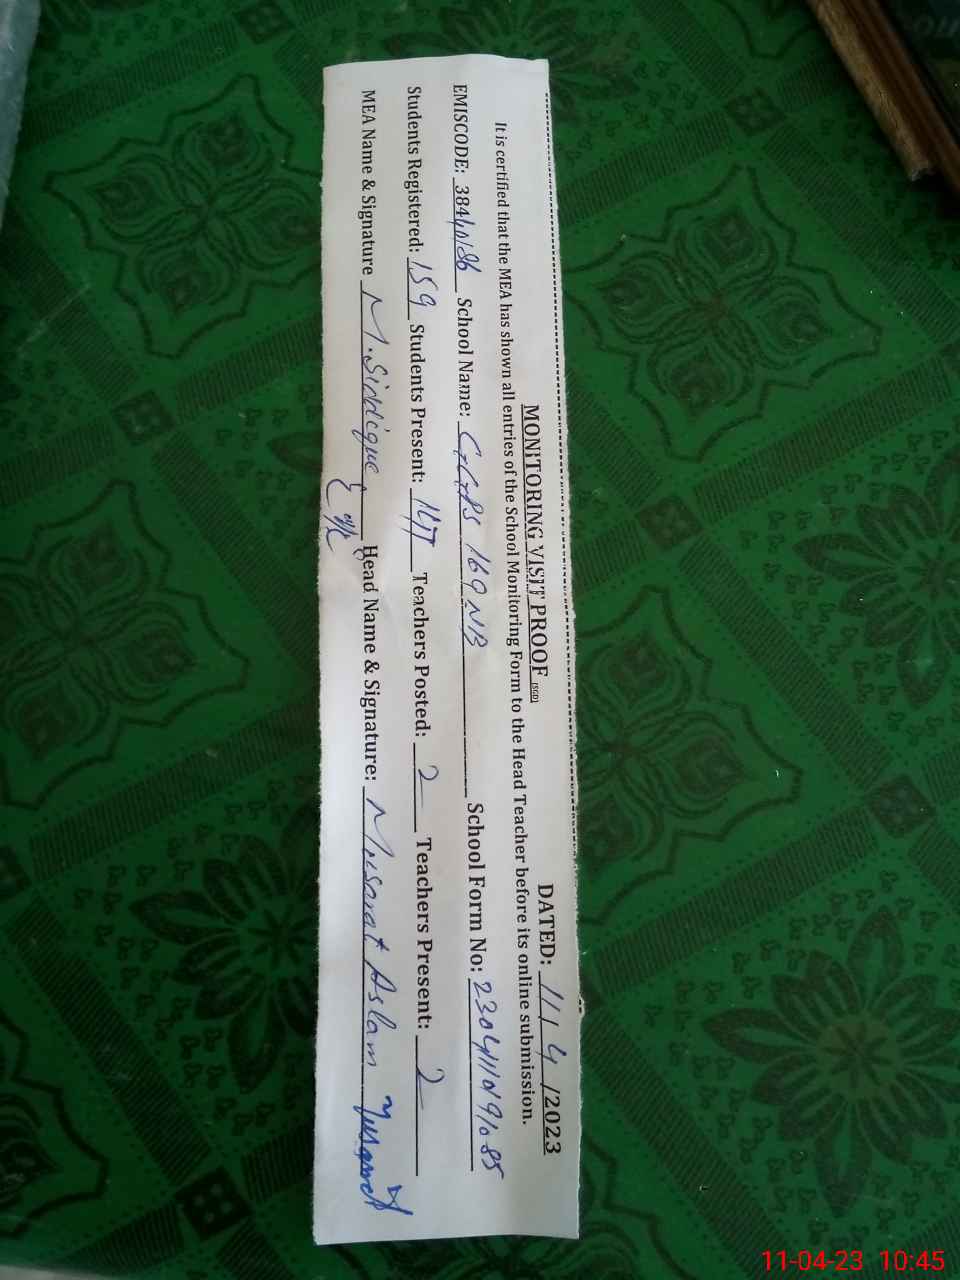 MONITORING VISIT PROOF (SGD) DATED: 11/4/2023
It is certified that the MEA has shown all entries of the School Monitoring Form to the Head Teacher before its online submission.
EMISCODE: 38440186 School Name: GGPS 169 NB School Form No:
Students Registered: 159 Students Present: 147 Teachers Posted: 2 Teachers Present: 2
MEA Name & Signature M. Siddique Head Name & Signature: Musarat Aslam
11-04-23 10:45